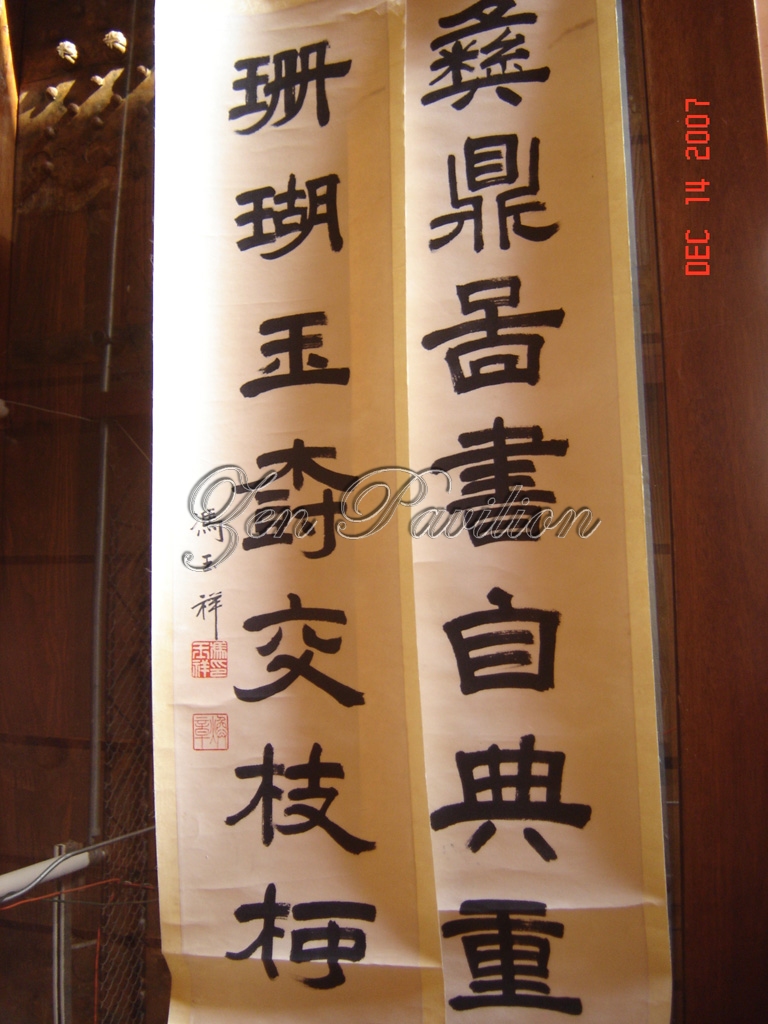 彝鼎啚書自典重
珊瑚玉樹交枝柯
馮玉祥
馮印玉祥
煥章
Zen Pavilion
DEC 14 2007